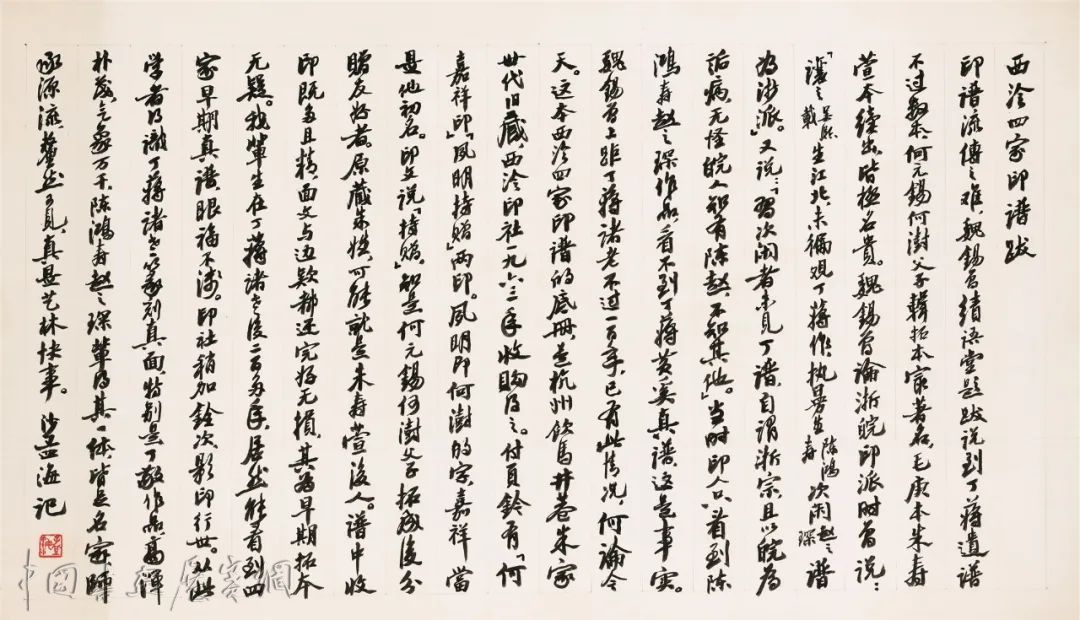 西泠四家印谱跋
印谱流传之难，魏锡曾绩语堂题跋说到丁蒋遗谱
不过数本，何元锡何澍父子辑拓本最著名，毛庚本朱寿
萱本续出，皆极名贵。魏锡曾论浙皖印派时曾说：
「让之吴熙载生江北，未徧观丁蒋作，执曼生陈鸿寿次闲赵之琛谱
为浙派」又说：「习次闲者未见丁谱，自谓浙宗，且以皖为
诟病，无怪皖人知有陈赵，不知其他。」当时印人只看到陈
鸿寿赵之琛作品，看不到丁蒋黄奚真谱，这是事实。
魏锡曾上距丁蒋诸老不过一百年，已有此情况，何论今
天。这本西泠四家印谱的底册，是杭州饮马井巷朱家
世代旧藏，西泠印社一九六二年收购得之。付页钤有「何
嘉祥印」「凤明持赠」两印。凤明即何澍的字，嘉祥当
是他初名。印文说「持赠」，知是何元锡何澍父子拓成后分
赠友好者。原藏朱姓，可能就是朱寿萱后人。谱中收
印既多且精，面文与边款都还完好无损，其为早期拓本
无疑。我辈生在丁蒋诸老后二百多年，居然能看到四
家早期真谱，眼福不浅。印社稍加铨次，影印行世。从此
学者得识丁蒋诸老篆刻真面，特别是丁敬作品高浑
朴茂，气象万千，陈鸿寿赵之琛辈得其一体，皆足名家，师
承源流，釐然可见，真是艺林快事。沙孟海记